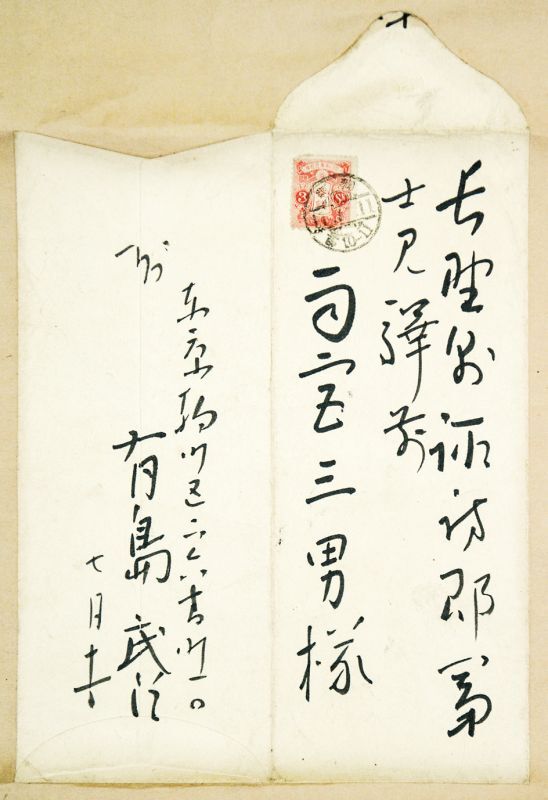 長野縣諏訪郡富
士見驛前
雨宮三男様
東京麹町区下六番町一〇
有島武郎
七月十